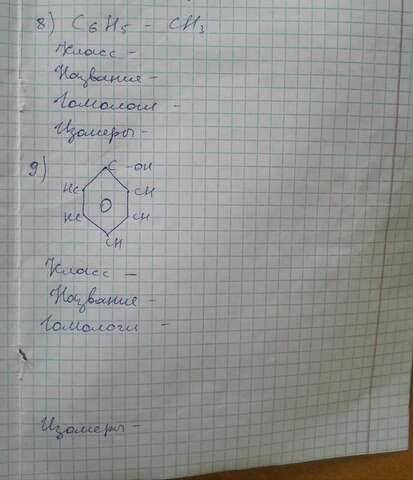 8) C6H5 - CH3
Класс -
Название -
Гомологи -
Изомеры -
9)
C - OH
HC CH
HC CH
CH
Класс -
Название -
Гомологи -
Изомеры -